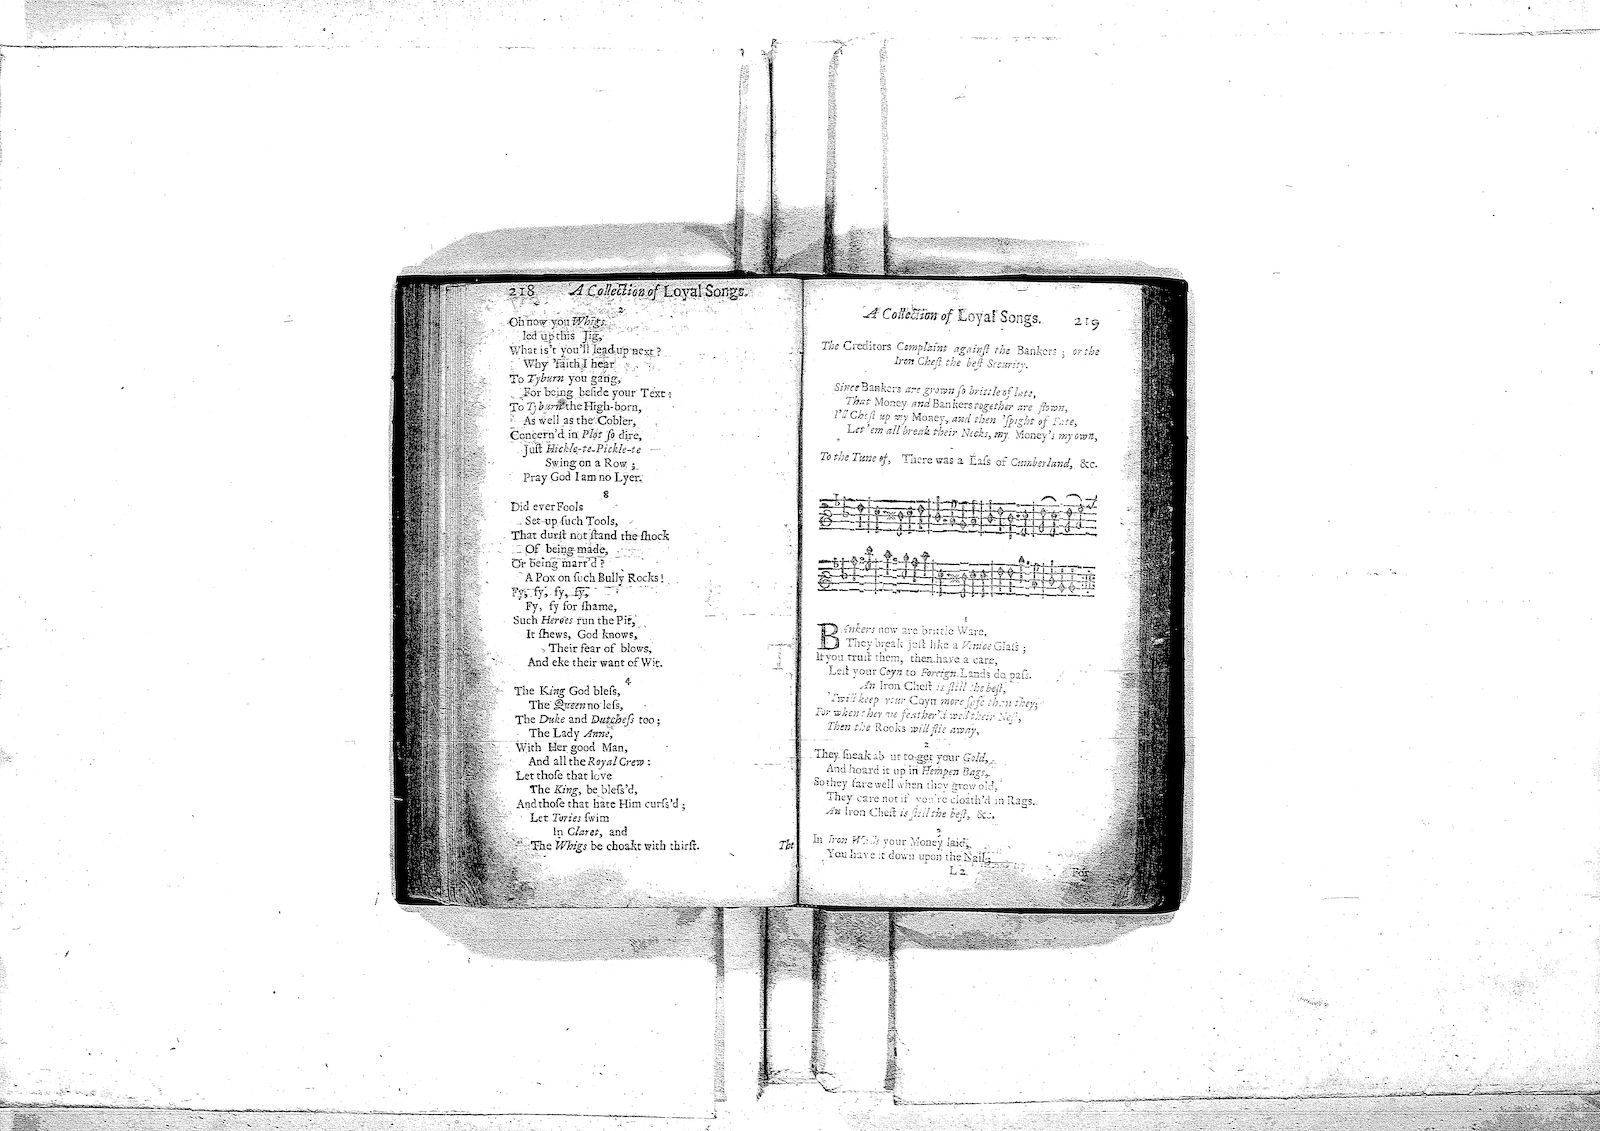 218 A Collection of Loyal Songs.
2
Oh now you Whigs
led up this Jig,
What is't you'll lead up next ?
Why 'faith I hear
To Tyburn you gang,
For being beſide your Text :
To Tyburn the High-born,
As well as the Cobler,
Concern'd in Plot ſo dire,
Juſt Hickle-te-Pickle-te
Swing on a Row ;
Pray God I am no Lyer.
8
Did ever Fools
Set up ſuch Tools,
That durſt not ſtand the ſhock
Of being made,
Or being marr'd ?
A Pox on ſuch Bully Rocks !
Fy, fy, fy, fy,
Fy, fy for ſhame,
Such Heroes run the Pit,
It ſhews, God knows,
Their fear of blows,
And eke their want of Wit.
4
The King God bleſs,
The Queen no leſs,
The Duke and Dutcheſs too ;
The Lady Anne,
With Her good Man,
And all the Royal Crew :
Let thoſe that love
The King, be bleſs'd,
And thoſe that hate Him curſs'd ;
Let Tories ſwim
In Claret, and
The Whigs be choakt with thirſt.
The
A Collection of Loyal Songs. 219
The Creditors Complaint againſt the Bankers ; or the
Iron Cheſt the beſt Security.
Since Bankers are grown ſo brittle of late,
That Money and Bankers together are flown,
I'll Cheſt up my Money, and then 'ſpight of Fate,
Let 'em all break their Necks, my Money's my own,
To the Tune of, There was a Laſs of Cumberland, &c.
1
BAnkers now are brittle Ware,
They break juſt like a Venice Glaſs ;
If you truſt them, then have a care,
Leſt your Coyn to Foreign Lands do paſs.
An Iron Cheſt is ſtill the beſt,
'Twill keep your Coyn more ſafe than they;
For when they've feather'd well their Neſt,
Then the Rooks will flie away,
2
They ſneak about to get your Gold,
And hoard it up in Hempen Bags,
So they fare well when they grow old,
They care not if you're cloath'd in Rags.
An Iron Cheſt is ſtill the beſt, &c.
3
In Iron Walls your Money laid,
You have it down upon the Nail;
L 2 For